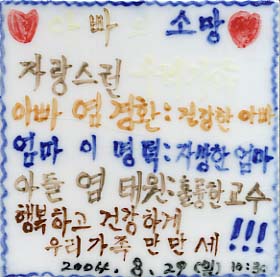 아빠 소망
자랑스런
아빠 염경환: 건강한 아빠
엄마 이명덕: 자상한 엄마
아들 염태원: 훌륭한 교수
행복하고 건강하게
우리가족 만만세 !!!
2004. 8. 29 (일)